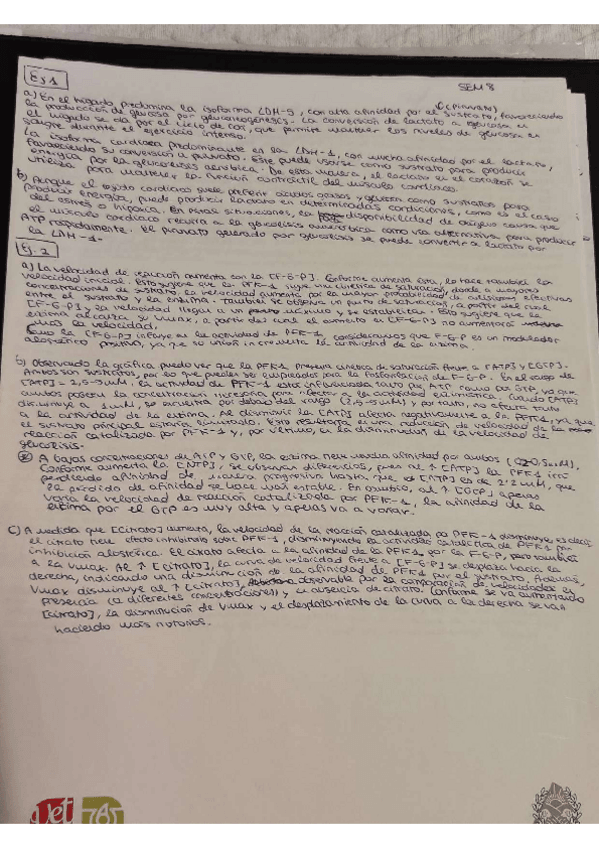 SEM 8
EJ 1
a) En el hígado predomina la isoforma LDH-5, con alta afinidad por el sustrato (piruvato), favoreciendo
la producción de glucosa por gluconeogénesis. La conversión de lactato a glucosa en
el hígado se da por el ciclo de Cori, que permite mantener los niveles de glucosa en
sangre durante el ejercicio intenso.
La isoforma cardíaca predominante en la LDH-1, con mucha afinidad por el lactato,
favoreciendo su conversión a piruvato. Este puede usarse como sustrato para producir
energía por la glucólisis aeróbica. De esta manera, el lactato en el corazón se
utiliza para mantener la función contráctil del músculo cardíaco.
b) Aunque el tejido cardíaco suele preferir ácidos grasos y glucosa como sustratos para
producir energía, puede producir lactato en determinadas condiciones, como es el caso
del estrés o hipoxia. En estas situaciones, la disponibilidad de oxígeno causa que
el músculo cardíaco recurra a la glucólisis anaeróbica como vía alternativa para producir
ATP rápidamente. El piruvato generado por glucólisis se puede convertir a lactato por
la LDH-1.
EJ. 2
a) La velocidad de reacción aumenta con la [F-6-P]. Conforme aumenta esta, lo hace también la
velocidad inicial. Esto sugiere que la PFK-1 sigue una cinética de saturación, donde a mayores
concentraciones de sustrato, la velocidad aumenta por la mayor probabilidad de colisiones efectivas
entre el sustrato y la enzima. También se observa un punto de saturación, a partir del cual
[F-6-P] y la velocidad llegue a un máximo y se estabilitza. Esto sugiere que la
enzima alcanza su Vmax, a partir del cual el aumento en [F-6-P] no aumentará
más la velocidad.
Como la [F-6-P] influye en la actividad de PFK-1, consideramos que F-6-P es un modulador
alostérico positivo, ya que su unión incrementa la actividad de la enzima.
b) Observando la gráfica puedo ver que la PFK-1 presenta cinética de saturación frente a [ATP] y [GTP].
Ambos son sustratos, por lo que pueden ser empleados para la fosforilación de F-6-P. En el rango de
[ATP] = 2,5-5 mM, la actividad de PFK-1 está influenciada tanto por ATP como por GTP, ya que
ambos poseen la concentración necesaria para afectar a la actividad enzimática. Cuando [ATP]
disminuye a 1 mM, se encuentra por debajo del rango (2,5-5 mM) y por tanto, no afecta tanto
a la actividad de la enzima. Al disminuir la [ATP] afecta negativamente a la PFK-1, ya que
el sustrato principal estaría limitado. Esto resultaría en una reducción de velocidad de la
reacción catalizada por PFK-1 y, por último, en la disminución de la velocidad de
glucólisis.
A bajas concentraciones de ATP y GTP, la enzima tiene mucha afinidad por ambos
Conforme aumenta la [NTP], se observan diferencias, pues al ↑ [ATP] la PFK-1 irá
perdiendo afinidad de manera progresiva hasta que [ATP] es de 2'2 mM, que
la pérdida de afinidad se hace más estable. En cambio, al ↑ [GTP] apenas
varía la velocidad de reacción catalizada por PFK-1, la afinidad de la
enzima por el GTP es muy alta y apenas va a variar.
c) A medida que [citrato] aumenta, la velocidad de la reacción catalizada por PFK-1 disminuye, es decir
el citrato tiene efecto inhibitorio sobre PFK-1, disminuyendo la actividad catalítica de PFK-1 por
inhibición alostérica. El citrato afecta a la afinidad de la PFK-1, por la F-6-P, pero también
a la Vmax. Al ↑ [citrato], la curva de velocidad frente a [F-6-P] se desplaza hacia la
derecha, indicando una disminución de la afinidad de PFK-1 por el sustrato. Además,
Vmax disminuye al ↑ [citrato], observable por la comparación de velocidades en
presencia (a diferentes concentraciones) y en ausencia de citrato. Conforme se va aumentando
[citrato], la disminución de Vmax y el desplazamiento de la curva a la derecha se van
haciendo más notorios.
vet